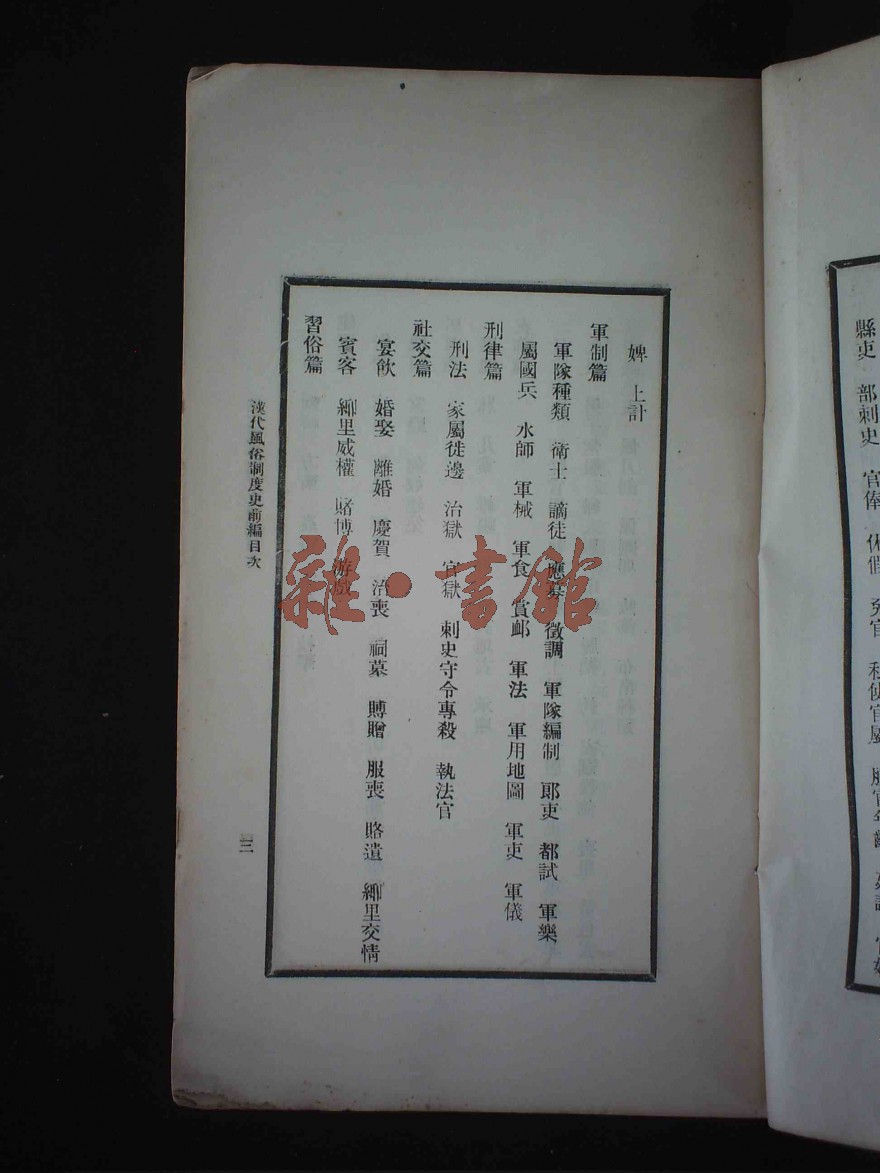 縣吏 部刺史 官俸 休假 免官
婢 上計
軍制篇
軍隊種類 衛士 謫徒 應募 徵調 軍隊編制 郞吏 都試 軍樂
屬國兵 水師 軍械 軍食 賞卹 軍法 軍用地圖 軍吏 軍儀
刑律篇
刑法 家屬徙邊 治獄 官獄 刺史守令專殺 執法官
社交篇
宴飮 婚娶 離婚 慶賀 治喪 祠墓 賻贈 服喪 賂遺 鄕里交情
賓客 鄕里威權 賭博 游戲
習俗篇
漢代風俗制度史前編目次
三
雜·書館